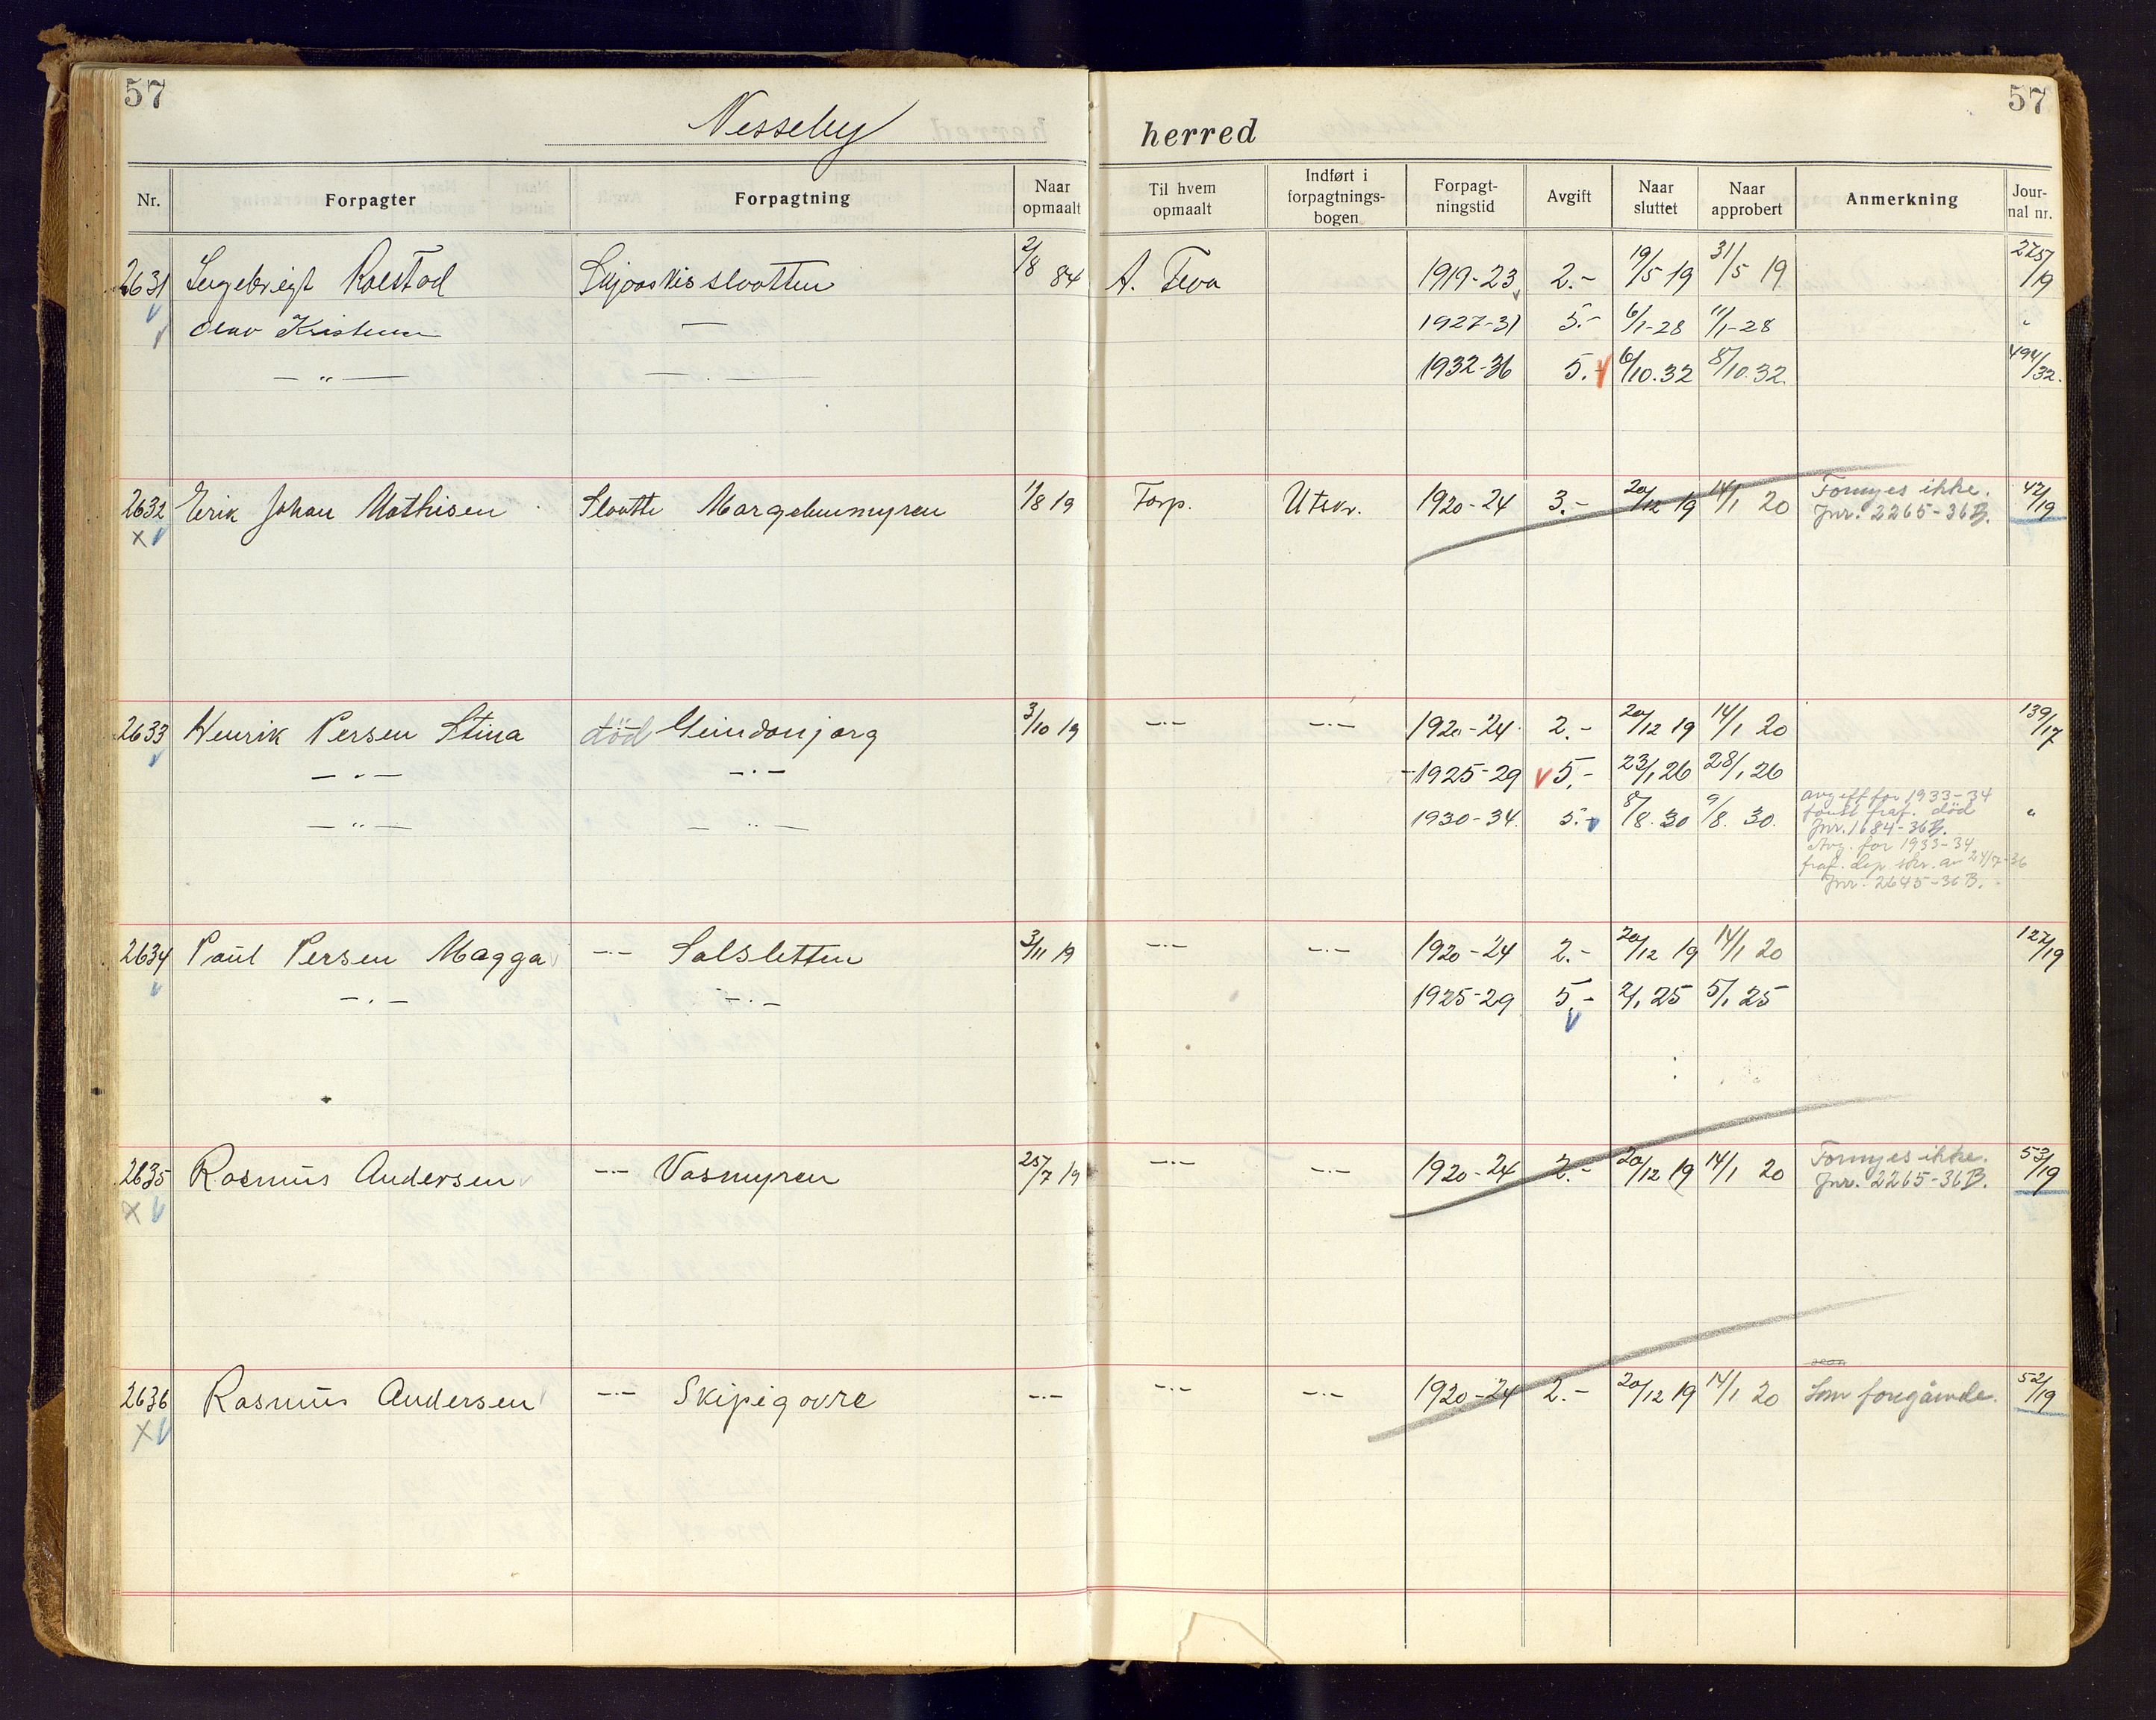 57
57
Nesseby herred
Nr. Forpagter Forpagtning Naar opmaalt Til hvem opmaalt Indført i forpagtnings-bogen Forpagt-ningstid Avgift Naar sluttet Naar approbert Anmerkning Jour-nal nr.
2631 Ingebrigt Rolstad 2/8 84 1919-23 2.- 19/5 19 31/5 19 2257/19
Olav Kristensen — 1927-31 5.- 6/1-28 11/1-28 "
— " — — . — 1932-36 5.- 6/10.32 8/10.32. 494/32.
2632 Erik Johan Mathisen Slaatte 1/8 19 Forp. Utskr. 1920-24 3.- 20/12 19 14/1 20 Fornyes ikke. 42/19
Jnr. 2265-36B.
2633 Henrik Persen Stina död 3/10 19 —.— —.— 1920-24 2.- 20/12 19 14/1 20 139/17
—.— —.— 1925-29 5.- 23/1 26 28/1 26
— " — — " — 1930-34. 5.- 8/8. 30 9/8. 30. "
avgift for 1933-34
fraf. död
Jnr. 1684-36B.
Avg. for 1933-34
fraf. dep skr. av 24/7-36
Jnr. 2645-36B.
2634 Paul Persen Magga —.— Salsletten 3/11 19 —.— —.— 1920-24 2.- 20/12 19 14/1 20 127/19
—.— —.— 1925-29 5.- 2/1 25 5/1 25
2635 Rasmus Andersen —.— Vasmyren 25/7 19 —.— —.— 1920-24 2.- 20/12 19 14/1 20 Fornyes ikke. 53/19
Jnr. 2265-36B.
2636 Rasmus Andersen —.— Skipigovre —.— —.— —.— 1920-24 2.- 20/12 19 14/1 20 Som foregående. 52/19